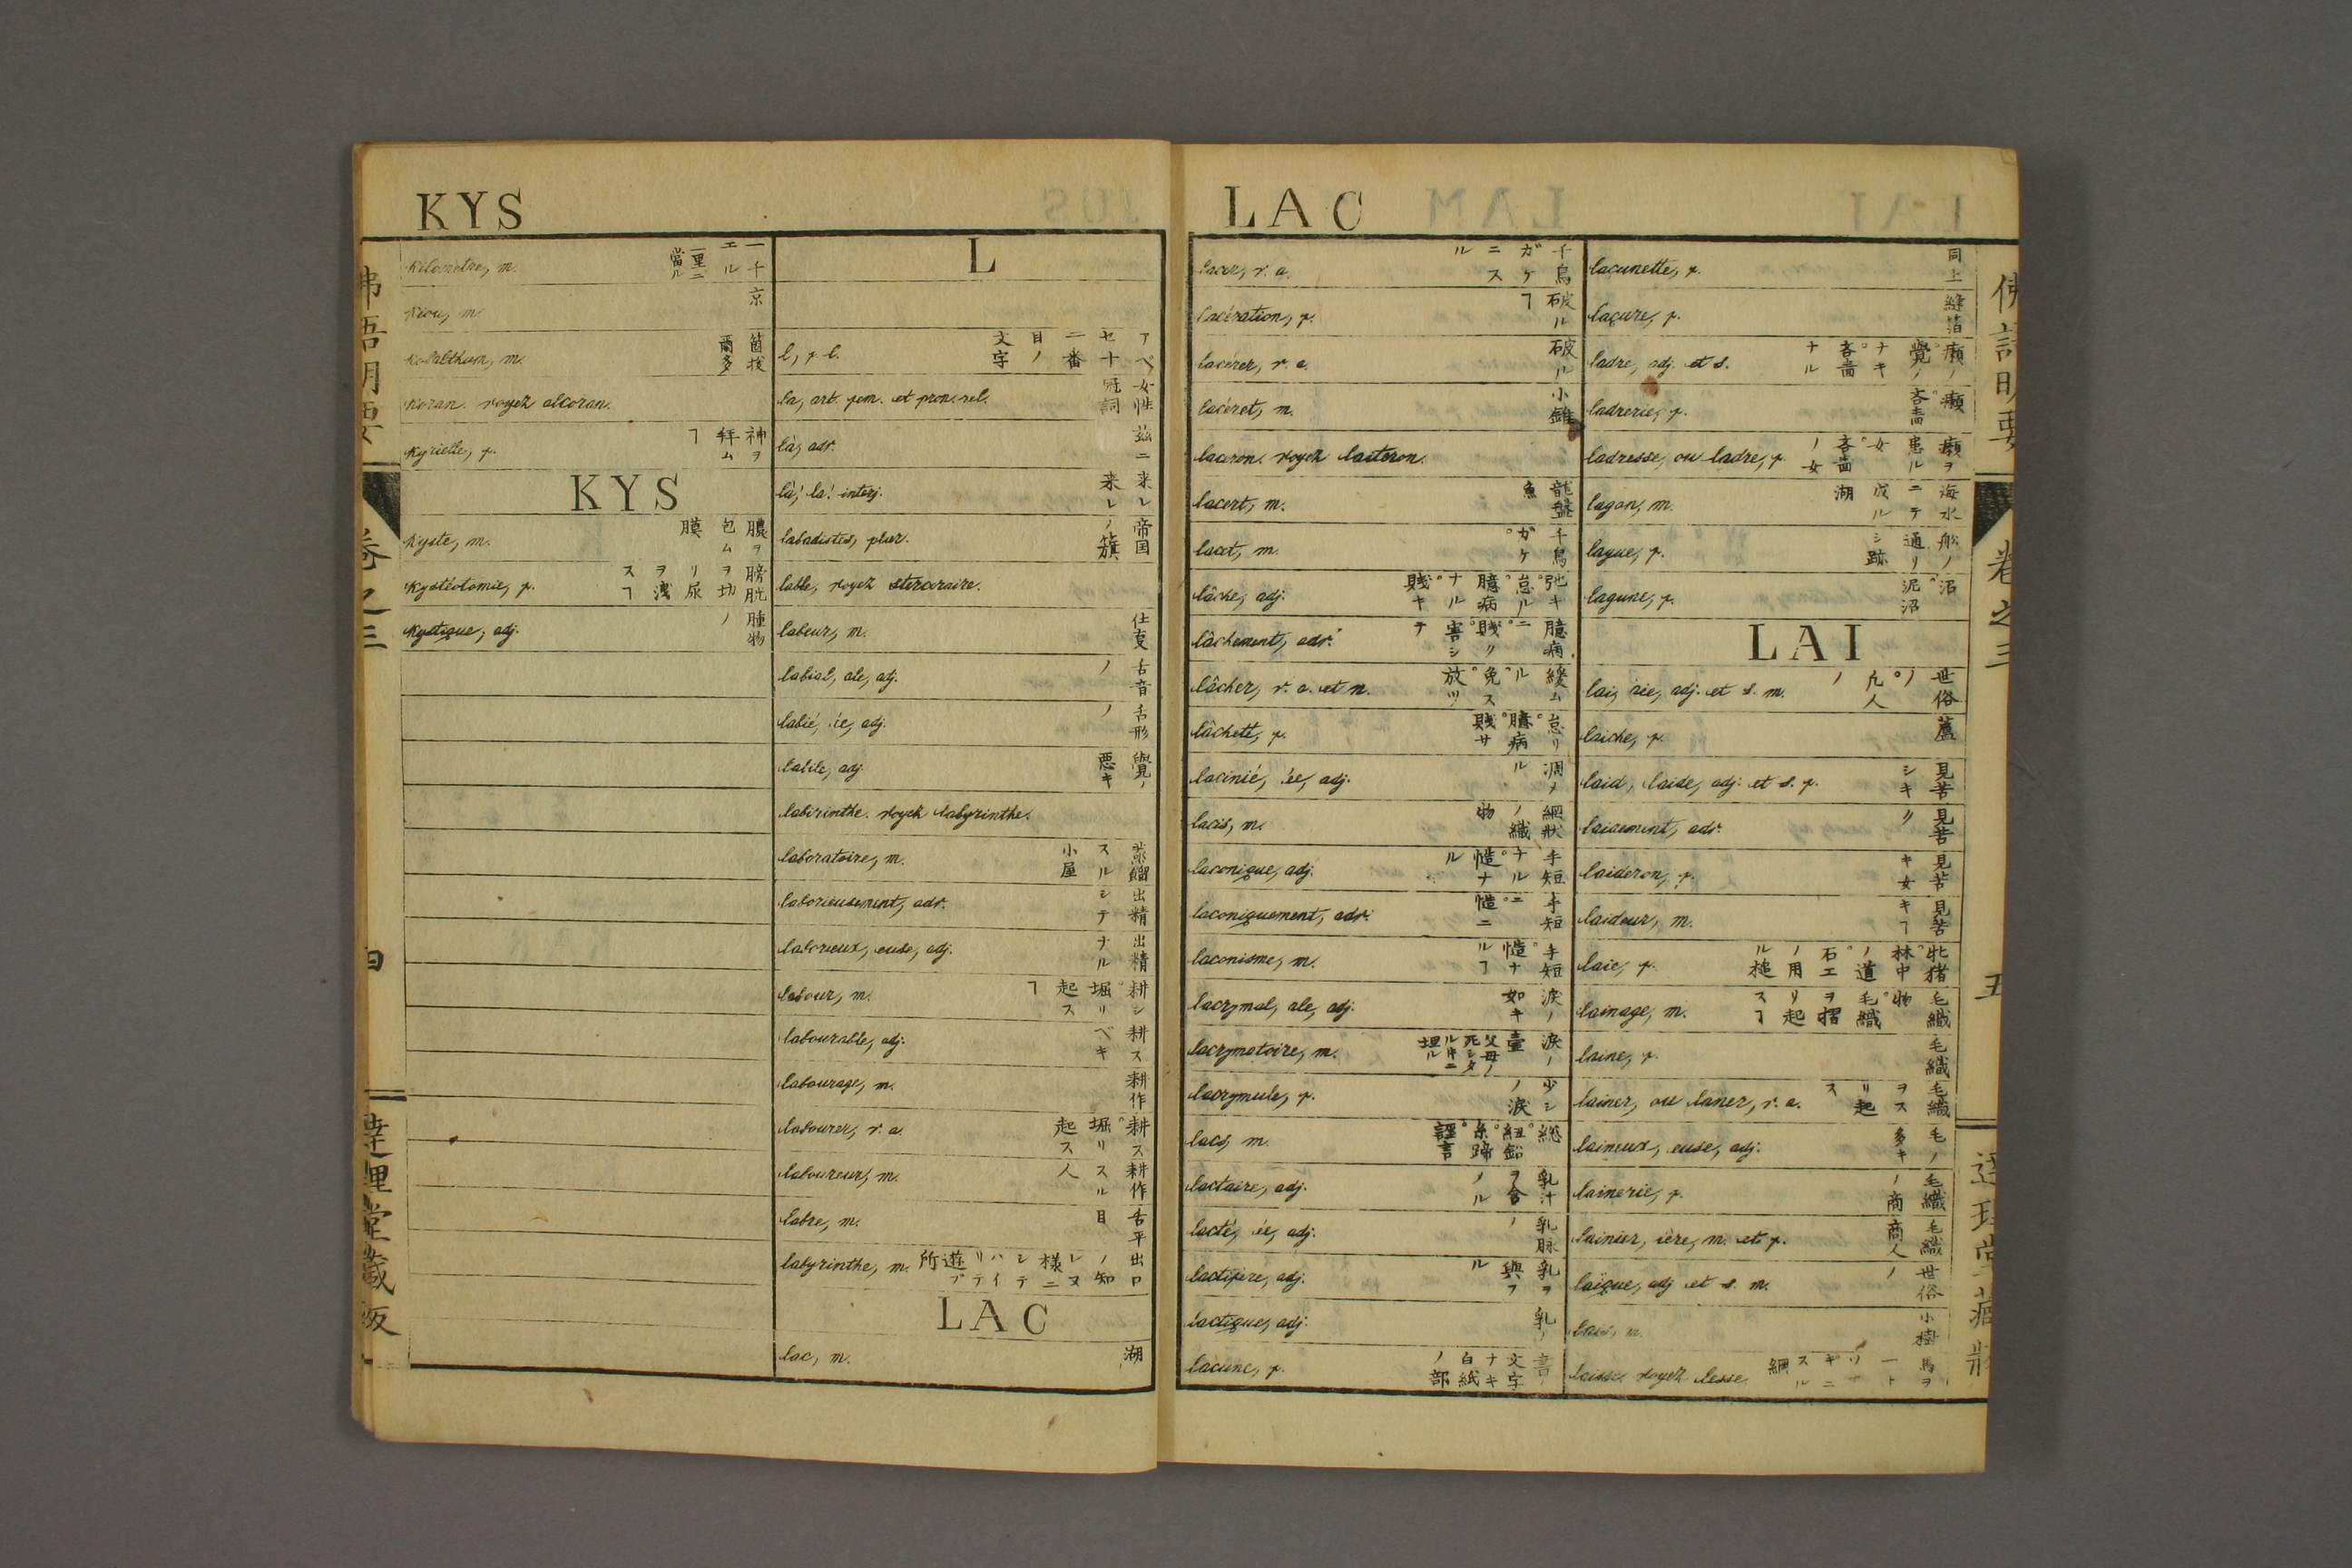 KYS
kilometre, m. 一千エルー里ニ當ル
kiou, m. 京
kobalthum, m. 箇拔爾多
koran. voyez alcoran.
kyrielle, f. 神ヲ拜ムヿ
KYS
kyste, m. 膿ヲ包ム膜
kystéotomie, f. 膀胱ヲ切リ尿ヲ洩スヿ
kystique, adj. 腫物ノ
L
l, f. l. アベセ十二番目ノ文字
la, art. fem. et pron. rel. 女性冠詞
là, adv. 茲ニ
là! la! interj. 来レ来レ
labadistes, plur. 帝国ノ籏
labbe, voyez stercoraire.
labeur, m. 仕叓
labial, ale, adj. 舌音ノ
labié, ée, adj. 舌形ノ
labile, adj. 覺ノ悪キ
labirinthe. voyez labyrinthe.
laboratoire, m. 蒸餾スル小屋
laborieusement, adv. 出精シテ
laborieux, euse, adj. 出精ナル
labour, m. 耕シ堀リ起スヿ
labourable, adj. 耕スベキ
labourage, m. 耕作
labourer, v. a. 耕ス。堀リ起ス
laboureur, m. 耕作スル人
labre, m. 舌平目
labyrinthe, m. 出口ノ知レヌ様ニシテ
LAC
lac, m. 湖
佛語明要
卷之三
四
達理堂藏版
LAC
lacer, v. a. 千鳥ガケニスル
lacération, f. 破ルヿ
lacérer, v. a. 破ル
laceret, m. 小錐
laceron. voyez laiteron.
lacert, m. 龍盤魚
lacet, m. 千鳥ガケ。
lâche, adj. 弛キ。怠ル。臆病ナル。賤キ
lâchement, adv. 臆病ニ。賤ク。害シテ
lâcher, v. a. et n. 緩ムル。免ス。放ツ
lâcheté, f. 怠リ。臆病。賤サ
lacinié, ée, adj.
lacis, m. 網狀ノ織物
laconique, adj. 手短ナル。慥ナル
laconiquement, adv. 手短ニ。慥ニ
laconisme, m. 手短。慥ナルヿ
lacrymal, ale, adj. 涙ノ如キ
lacrymatoire, m. 涙ノ壷 父母ノ死シタルキニ埋ル
lacrymule, f. 少シノ涙
lacs, m.
lactaire, adj. 乳汁ヲ含ルノ
lacté, ée, adj. 乳脉ノ
lactifère, adj. 乳ヲ與フル
lactique, adj. 乳ノ
lacune, f. 書ノ文字ナキ白紙ノ部
lacunette, f. 同上
laçure, f. 縫箔
ladre, adj. et s. 癩ノ。覺ノナキ。吝嗇ナル
ladrerie, f. 癩。吝嗇
ladresse, ou ladre, f. 癩ヲ患ル女。吝嗇ノ女
lagon, m. 海水ニテ成ル湖
lague, f. 舩ノ通リシ跡
lagune, f. 沼。泥沼
LAI
lai, aie, adj. et s. m. 世俗ノ。凡人ノ
laiche, f. 蘆
laid, laide, adj. et s. f. 見苦シキ
laidement, adv. 見苦ク
laideron, f. 見苦キ女
laideur, m. 見苦キヿ
laie, f. 牝猪。林中ノ道。石工ノ用ル槌
lainage, m. 毛織物。毛織ヲ摺リ起スヿ
laine, f. 毛織
lainer, ou laner, v. a. 毛織ヲスリ起ス
laineux, euse, adj. 毛ノ多キ
lainerie, f. 毛織ノ商
lainier, ière, m. et f. 毛織商人
laïque, adj et s. m. 世俗ノ
lais, m. 小樹
laisse. voyez lesse.
佛語明要
卷之三
五
達理堂藏版